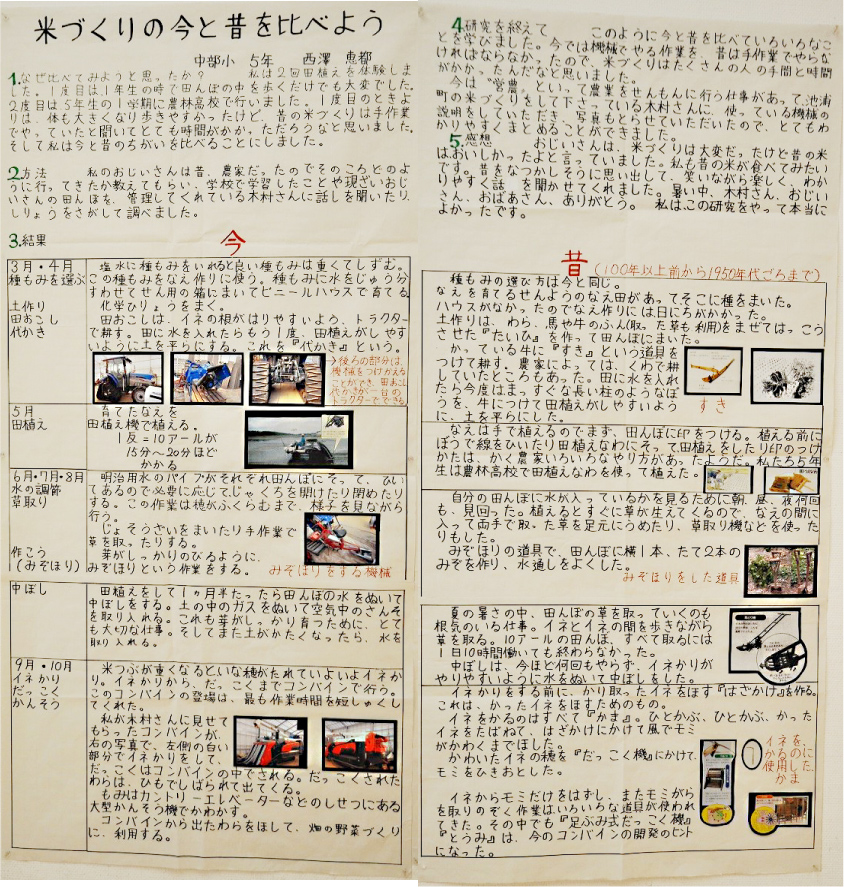 米づくりの今と昔を比べよう
中部小 5年 西澤 恵都
1.なぜ比べてみようと思ったか? 私は2回田植えを体験しま
した。1度目は1年生の時で田んぼの中を歩くだけでも大変でした。
2度目は5年生の1学期に農林高校で行いました。1度目のときよ
りは、体も大きくなり歩きやすかったけど、昔の米づくりは手作業
でやっていたと聞いてとても時間がかかっただろうなと思いました。
そして私は今と昔のちがいを比べることにしました。
2.方法 私のおじいさんは昔、農家だったのでそのころどのよ
うに行ってきたか教えてもらい、学校で学習したことや現ざいおじ
いさんの田んぼを、管理してくれている木村さんに話しを聞いたり、
しりょうをさがして調べました。
3.結果
今
3月・4月
種もみを選ぶ
土作り
田おこし
代かき
塩水に種もみをいれると良い種もみは重くてしずむ。
この種もみをなえ作りに使う。種もみに水をじゅう分
すわせてせん用の箱にまいてビニールハウスで育てる
化学ひりょうをまく。
田おこしは、イネの根がはりやすいよう、トラクター
で耕す。田に水を入れたらもう1度、田植えがしやす
いように土を平らにする。これを『代かき』という。
→後ろの部分は、
機械をつけかえる
ことができ、田おこし
代かきが一台の
トラクターでできる
5月
田植え
育てたなえを
田植え機で植える。
1反=10アールが
15分〜20分ほど
かかる
6月・7月・8月
水の調節
草取り
作こう
(みぞほり)
明治用水のパイプがそれぞれ田んぼにそって、ひい
てあるので必要に応じてじゃぐちを開けたり閉めたり
する。この作業は穂がふくらむまで、様子を見ながら
行う。
じょそうざいをまいたり手作業で
草を取ったりする。
芽がしっかりのびるように、
みぞほりという作業をする。 みぞほりをする機械
中ぼし
田植えをして1ヵ月半たったら田んぼの水をぬいて
中ぼしをする。土の中のガスをぬいて空気中のさんそ
を取り入れる。これも芽がしっかり育つために、とて
も大切な仕事。そしてまた土がかたくなったら、水を
取り入れる。
9月・10月
イネかり
だっこく
かんそう
米つぶが重くなるといな穂がたれていよいよイネか
り。イネかりから、だっこくまでコンバインで行う。
このコンバインの登場は、最も作業時間を短しゅくし
てくれた。
私が木村さんに見せて
もらったコンバインが、
右の写真で、左側の白い
部分でイネかりをして、
だっこくはコンバインの中でされる。だっこくされた
わらは、ひもでしばられて出てくる。
もみはカントリーエレベーターなどのしせつにある
大型かんそう機でかわかす。
コンバインから出たわらをほして、畑の野菜づくり
に、利用する。
4.研究を終えて このように今と昔を比べていろいろなこ
とを学びました。今では機械でやる作業を、昔は手作業でやらな
ければならなかったので、米づくりはたくさんの人の手間と時間
がかかったんだなと思いました。
今は"営農"といって農業をせんもんに行う仕事があって、池浦
町の米づくりをして下さっている木村さんに、使っている機械の
説明をしていただき、写真もとらせていただいたので、とてもわ
かりやすくまとめることができました。
5.感想 おじいさんは、米づくりは大変だったけど昔の米
はおいしかったよと言っていました。私も昔の米が食べてみたい
です。昔をなつかしそうに思い出して、笑いながら楽しく、わか
りやすく話を聞かせてくれました。暑い中、木村さん、おじい
さん、おばあさん、ありがとう。 私はこの研究をやって本当に
よかったです。
昔(100年以上前から1950年代ごろまで)
種もみの選び方は今と同じ。
なえを育てるせんようのなえ田があってそこに種をまいた。
ハウスがなかったのでなえ作りには日にちがかかった。
土作りは、わら、馬や牛のふん(取った草も利用)をまぜてはっこう
させた『たいひ』を作って田んぼにまいた。
かっている牛に『すき』という道具を
つけて耕す。農家によっては、くわで耕
していたところもあった。田に水を入れ
たら今度はまっすぐな長い柱のようなぼ
うを、牛につけて田植えがしやすいよう
に、土を平らにした。
すき
なえは手で植えるのでまず、田んぼに印をつける。植える前に
ぼうで線をひいたり田植えなわにそって、田植えをしたり印のつけ
かたは、かく農家いろいろなやり方があったようだ。私たち5年
生は農林高校で田植えなわを使って植えた。
自分の田んぼに水が入っているかを見るために朝、昼、夜何回
も、見回った。植えるとすぐに草が生えてくるので、なえの間に
入って両手で取った草を足元にうめたり、草取り機などを使った
りもした。
みぞほりの道具で、田んぼに横1本、たて2本の
みぞを作り、水通しをよくした。
みぞほりをした道具
夏の暑さの中、田んぼの草を取っていくのも
根気のいる仕事。イネとイネの間を歩きながら
草を取る。10アールの田んぼ、すべて取るには
1日10時間働いても終わらなかった。
中ぼしは、今ほど何回もやらず、イネかりが
やりやすいように水をぬいて中ぼしをした。
イネかりをする前に、かり取ったイネをほす『はざかけ』を作る。
これは、かったイネをほすためのもの。
イネをかるのはすべて『かま』。ひとかぶ、ひとかぶ、かった
イネをたばねて、はざかけにかけて風でモミ
がかわくまでほした。
かわいたイネの穂を『だっこく機』にかけて、
モミをひきおとした。
イネを、
かるのに
使用した
かま
イネからモミだけをはずし、またモミがら
を取りのぞく作業はいろいろな道具が使われ
てきた。その中でも『足ぶみ式だっこく機』
『とうみ』は、今のコンバインの開発のヒント
になった。